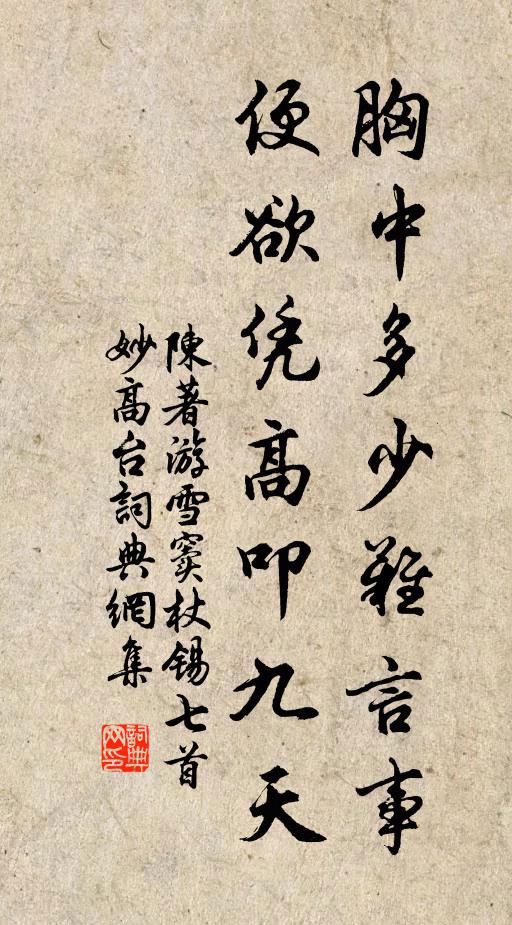 胸中多少難言事
便欲凭高叩九天
陳著游雪竇杖錫七首
妙高台詞典網集
詞典网印